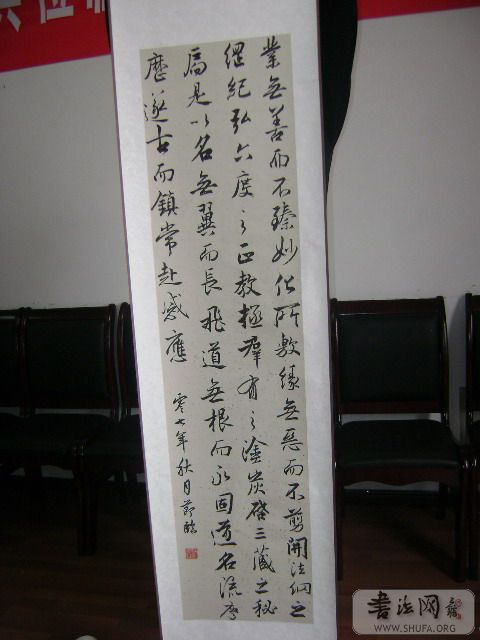 業無善而不臻妙化所敷緣無惡而不剪開法網之
綱紀弘六度之正教拯群有之塗炭啓三藏之秘
扃是以名無翼而長飛道無根而永固道名流慶
歷遂古而鎮常赴感應
零七年秋月
臨
書法网
WWW.SHUFA.ORG